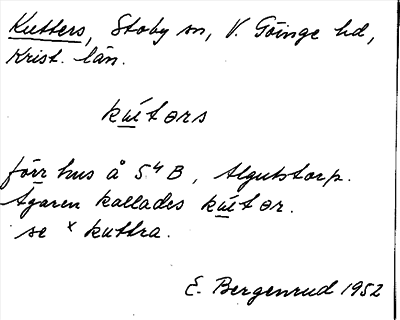 Kutters, Stoby sn, V. Göinge hd,
Krist. län.
kút ərs
förr hus å 5⁴ B, Algutstorp.
Ägaren kallades kút ər.
se ˣ kuttra.
E. Bergenrud 1952